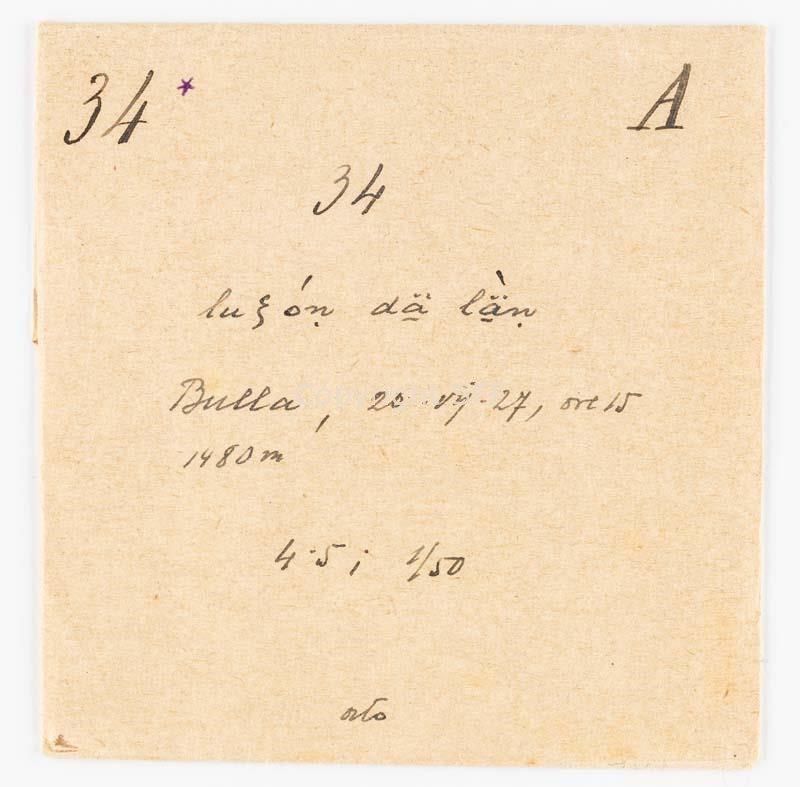 34 * A
34
luξóṇ dä̱ lä̱̀ṇ
Bulla, 20·vij·27, ore 15
1480 m
4·5; 1/50
orto